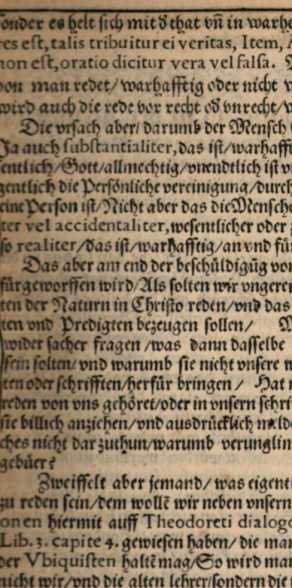 sonder es helt sich mit ð that vñ in warhe
res est, talis tribuitur ei veritas, Item, A
non est, oratio dicitur vera vel falsa.
von man redet/ warhafftig oder nicht
wird auch die rede vor recht oð vnrecht/
Die vrsach aber/ darumb der Mensch
Ja auch substantialiter, das ist/ warhaff
entlich/ Gott/ allmechtig/ vnendtlich ist
gentlich die Persönliche vereinigung/ durch
eine Person ist/ Nicht aber das die Mensche
ter vel accidentaliter, wesentlicher oder
so realiter/ das ist/ warhafftig/ an vnd für
Das aber am end der beschüldigũg von
fürgeworffen wird/ Als solten wir vngeren
ten der Naturn in Christo reden/ vnd das
ten vnd Predigten bezeugen sollen/
wider sacher fragen/ was dann dasselbe
sein solten/ vnd warumb sie nicht vnsere
ten oder schrifften/ herfür bringen/ Hat
reden von vns gehöret/ oder in vnsern schri
sie billich anziehen/ vnd ausdrücklich melden
ches nicht dar zuthun/ warumb verunglim
gebüer?
Zweiffelt aber jemand/ was eigent
zu reden sein/ dem wollē wir neben vnsern
onen hiermit auff Theodoreti dialogo
Lib. 3. capite 4. gewiesen haben/ die man
der Vbiquisten halten mag/ So wird man
nicht wir/ vnd die alten lehrer/ sondern die